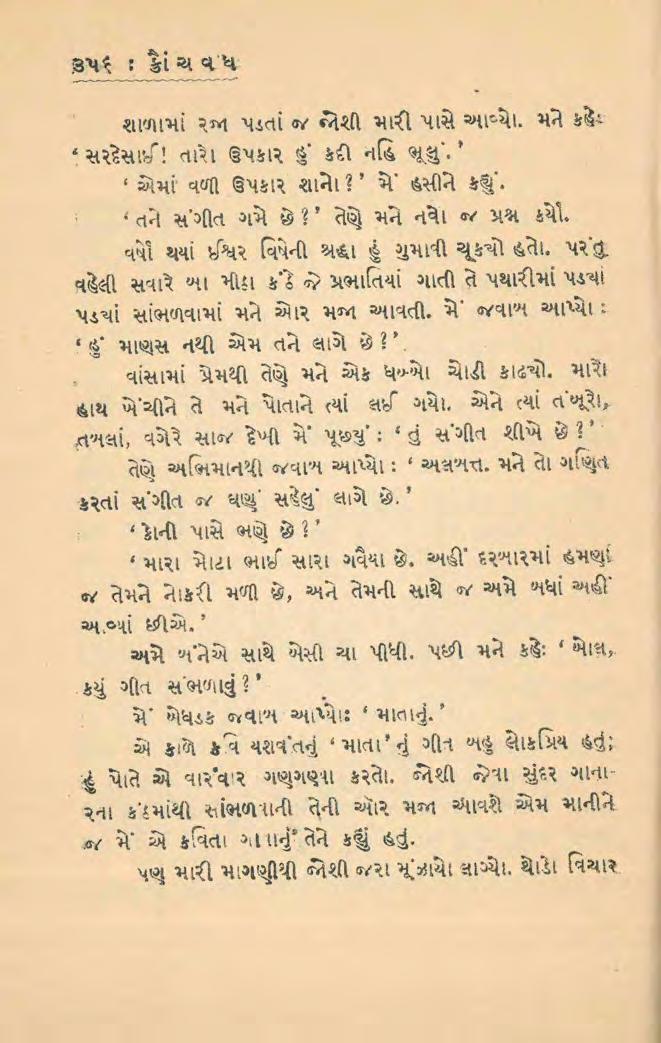 ૩૫૬ : ક્રૌંચવધ
શાળામાં રજા પડતાં જ જોશી મારી પાસે આવ્યો. મને કહેઃ
‘સરદેસાઈ! તારો ઉપકાર હું કદી નહિ ભૂલું.’
‘એમાં વળી ઉપકાર શાનો?’ મેં હસીને કહ્યું.
‘તને સંગીત ગમે છે?’ તેણે મને નવો જ પ્રશ્ન કર્યો.
વર્ષો થયાં ઈશ્વર વિષેની શ્રદ્ધા હું ગુમાવી ચૂક્યો હતો. પરંતુ
વહેલી સવારે બા મીઠા કંઠે જે પ્રભાતિયાં ગાતી તે પથારીમાં પડ્યાં
પડ્યાં સાંભળવામાં મને ઓર મજા આવતી. મેં જવાબ આપ્યો :
‘હું માણસ નથી એમ તને લાગે છે?’
વાંસામાં પ્રેમથી તેણે મને એક ધબ્બો ચોડી કાઢ્યો. મારો
હાથ ખેંચીને તે મને પોતાને ત્યાં લઈ ગયો. એને ત્યાં તંબૂરો,
તબલાં, વગેરે સાજ દેખી મેં પૂછ્યું : ‘તું સંગીત શીખે છે?’
તેણે અભિમાનથી જવાબ આપ્યો : ‘અલબત્ત. મને તો ગણિત
કરતાં સંગીત જ ઘણું સહેલું લાગે છે.’
‘કોની પાસે ભણે છે?’
‘મારા મોટા ભાઈ સારા ગવૈયા છે. અહીં દરબારમાં હમણાં
જ તેમને નોકરી મળી છે, અને તેમની સાથે જ અમે બધાં અહીં
આવ્યાં છીએ.’
અમે બંનેએ સાથે બેસી ચા પીધી. પછી મને કહેઃ ‘બોલ,
કયું ગીત સંભળાવું?’
મેં બેધડક જવાબ આપ્યોઃ ‘માતાનું.’
એ કાળે કવિ યશવંતનું ‘માતા’નું ગીત બહુ લોકપ્રિય હતું;
હું પોતે એ વારંવાર ગણગણ્યા કરતો. જોશી જેવા સુંદર ગાના-
રના કંઠમાંથી સાંભળવાની તેની ઓર મજા આવશે એમ માનીને
જ મેં એ કવિતા ગાવાનું તેને કહ્યું હતું.
પણ મારી માગણીથી જોશી જરા મૂંઝાયો લાગ્યો. થોડો વિચાર